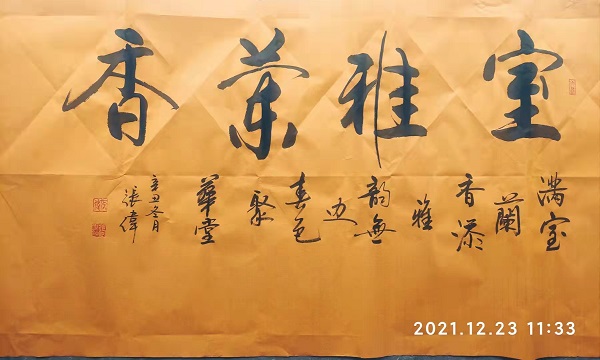 室雅兰香
满室
蘭
香添
雅
韵無
边
春色
聚
華堂
辛丑冬月
張偉
2021.12.23 11:33